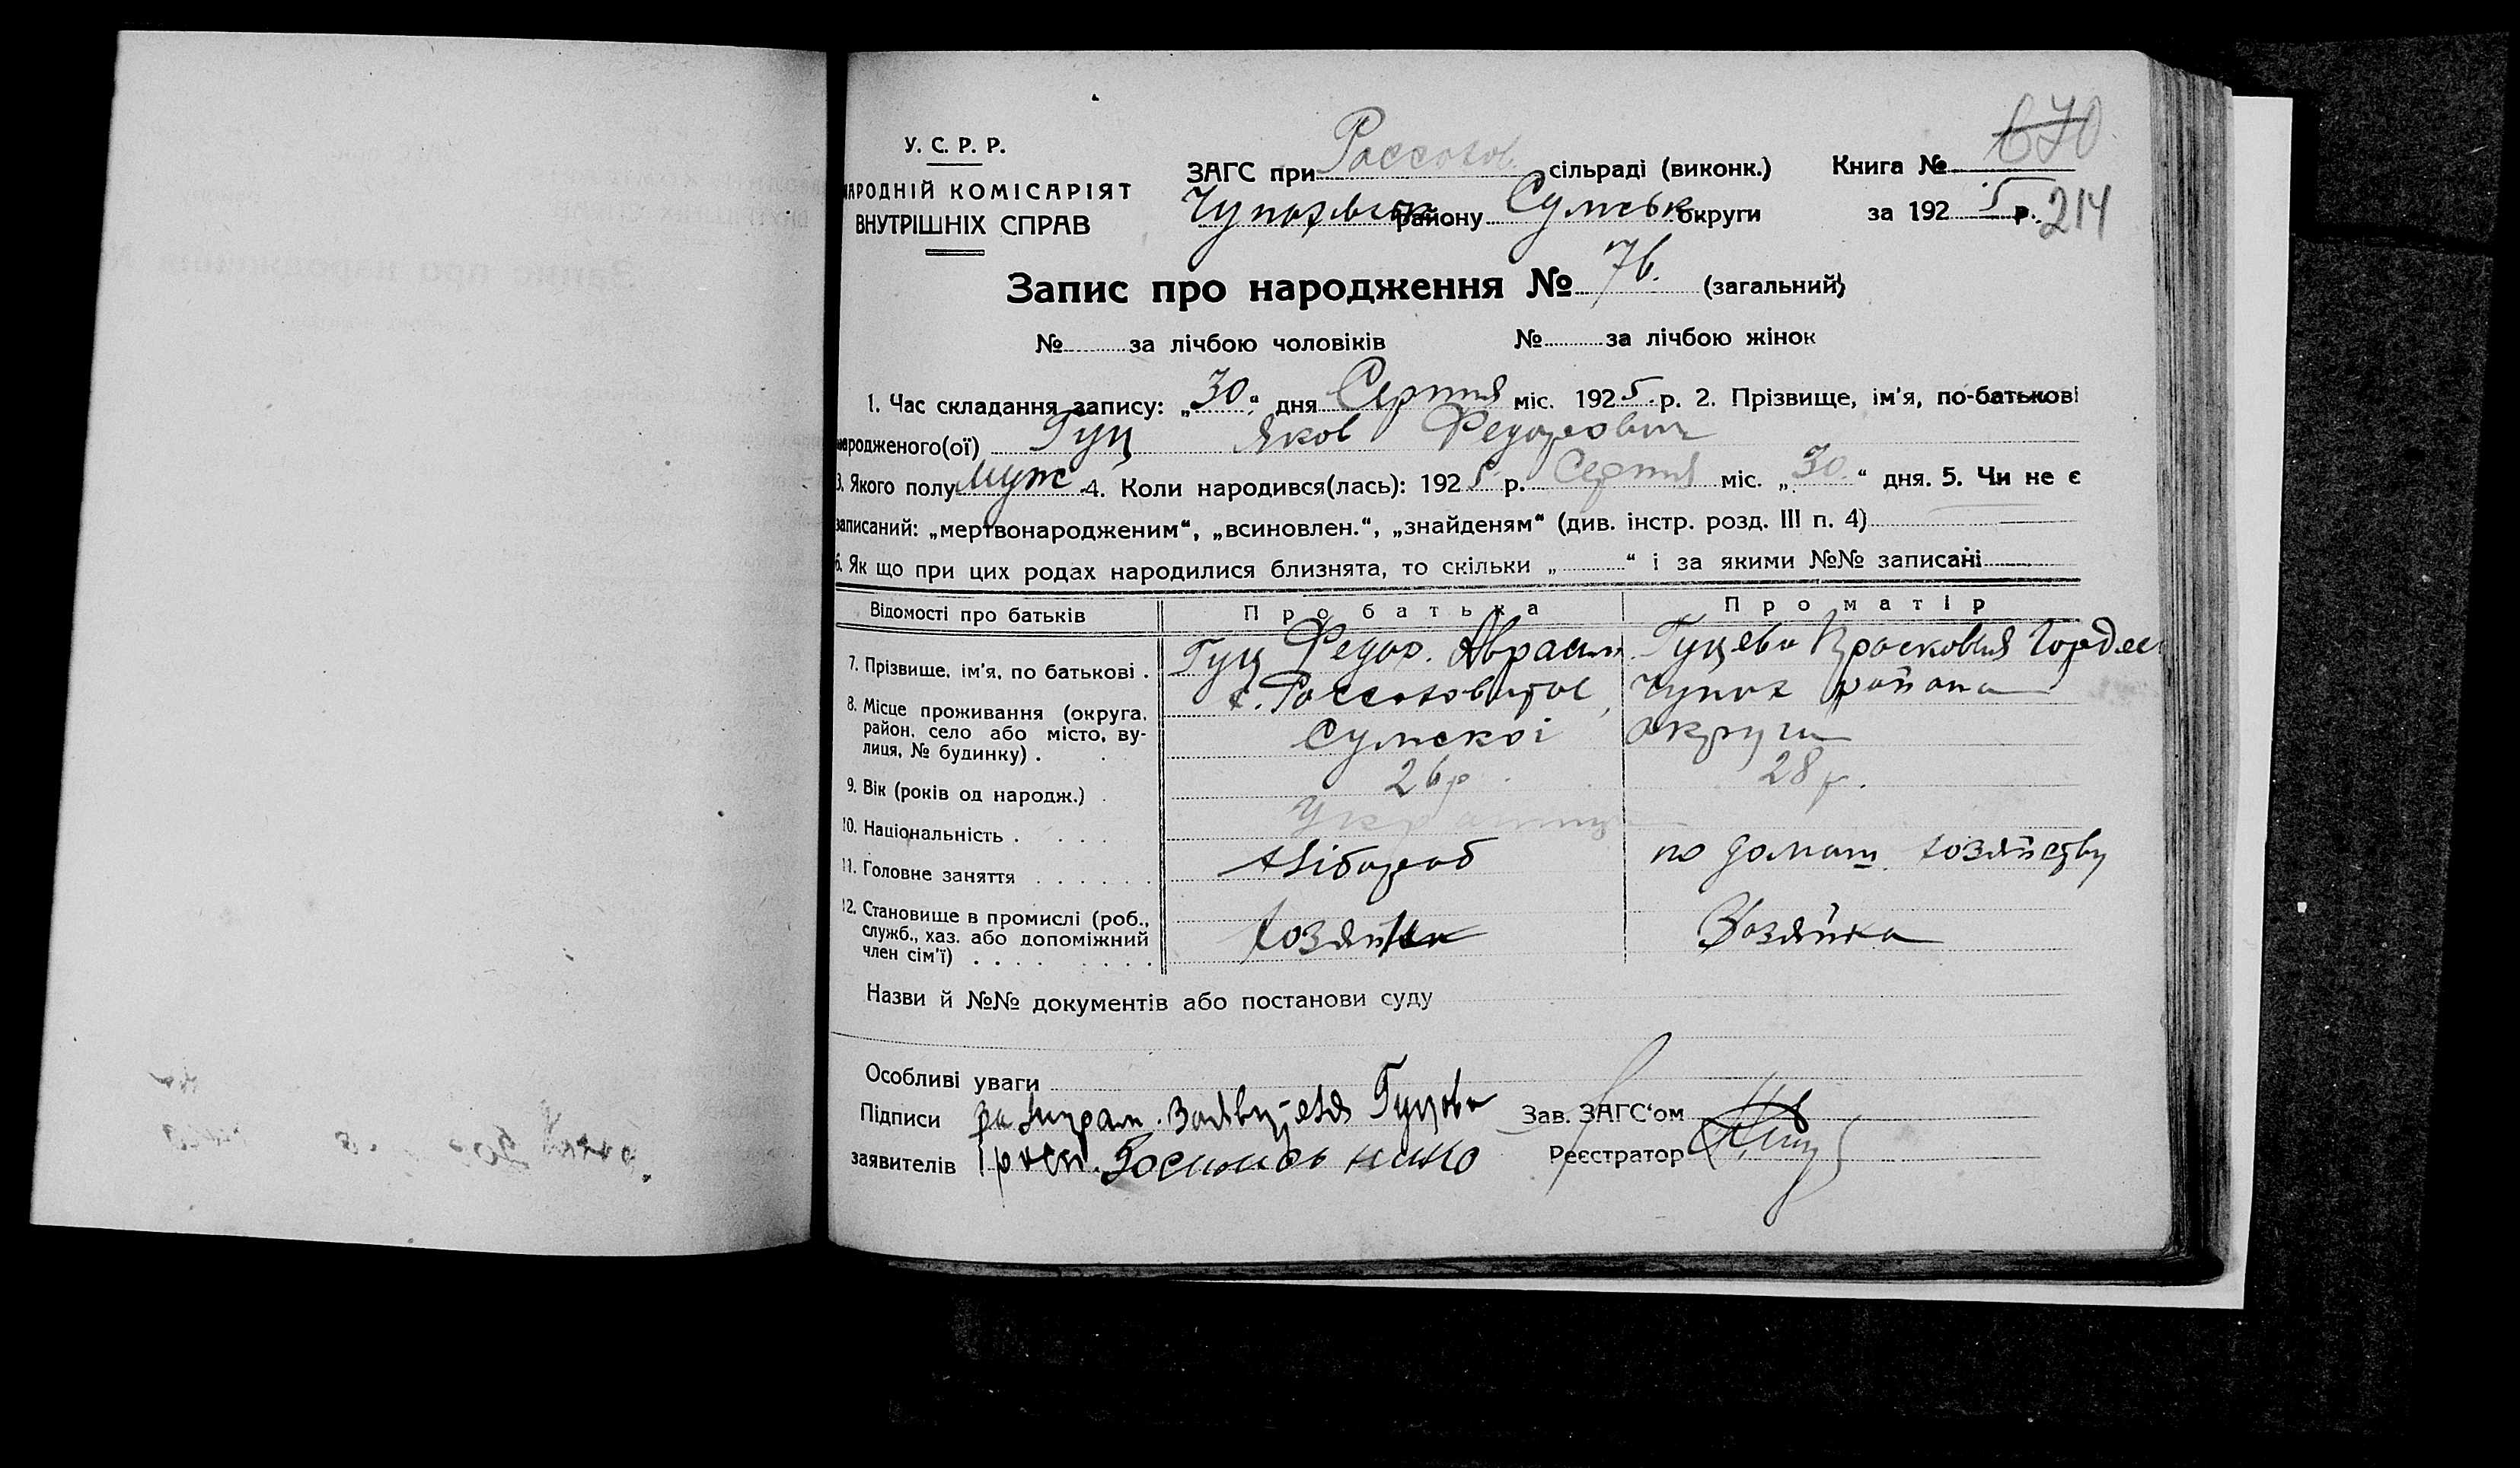 У. С. Р. Р.
НАРОДНІЙ КОМІСАРІЯТ
ВНУТРІШНІХ СПРАВ
ЗАГС при Россохов. сільраді (виконк.) Книга № 670
Чупахівськ району Сумськ округи за 1925 р. 214
Запис про народження № 76. (загальний)
№ за лічбою чоловіків № за лічбою жінок
1. Час складання запису: „30“ дня Серпня міс. 1925 р. 2. Прізвище, ім'я, по-батькові
народженого(ої) Гуц Яков Федорович
3. Якого полу муж 4. Коли народився(лась): 1925 р. Серпня міс. „30“ дня. 5. Чи не є
записаний: „мертвонародженим“, „всиновлен.“, „знайденям“ (див. інстр. розд. III п. 4)
6. Як що при цих родах народилися близнята, то скільки „ “ і за якими №№ записані
Відомості про батьків Про батька Про матір
7. Прізвище, ім'я, по батькові . Гуц Федор. Аврам. Гуцева Прасковия Гордее
8. Місце проживання (округа, район, село або місто, вулиця, № будинку) . с. Чупах района
Сумскоі округи
9. Вік (років од народж.) . 26 р 28 р.
10. Національність . . . . Украинец
11. Головне заняття . . . . . . Хлібороб по домаш. хозяйству
12. Становище в промислі (роб., служб., хаз. або допоміжний член сім'ї) . . . . . . . . хозяин Хозяйка
Назви й №№ документів або постанови суду
Особливі уваги
Підписи за Гуцова Зав. ЗАГС'ом
заявителів Реєстратор